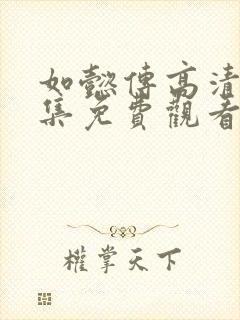 如懿傳高清
集免費觀看
權掌天下